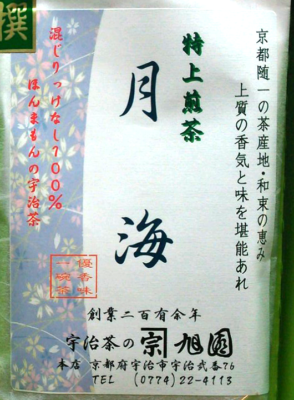 撰
京都随一の茶産地・和束の恵み
上質の香気と味を堪能あれ
特上煎茶
月海
混じりっけなし100%
ほんまもんの宇治茶
優香味
一煎茶
創業二百有余年
宇治茶の宗旭園
本店 京都府宇治市宇治弐番76
TEL (0774)22-4113